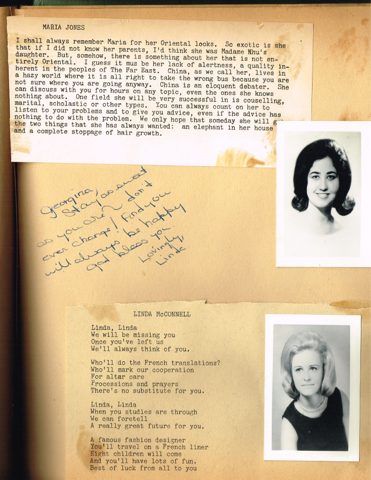 MARIA JONES
I shall always remember Maria for her Oriental looks. So exotic is she
that if I did not know her parents, I'd think she was Madame Nhu's
daughter. But, somehow, there is something about her that is not en-
tirely Oriental. I guess it mus be her lack of alertness, a quality in-
herent in the peoples of The Far East. China, as we call her, lives in
a hazy world where it is all right to take the wrong bus because you are
not sure where you are going anyway. China is an eloquent debater. She
can discuss with you for hours on any topic, even the ones she knows
nothing about. One field she will be very successful in is couselling,
marital, scholastic or other types. You can always count on her to
listen to your problems and to give you advice, even if the advice has
nothing to do with the problem. We only hope that someday she will g
the two things that she has always wanted: an elephant in her house
and a complete stoppage of hair growth.
Georgina,
Stay as sweet
as you are & don't
ever change! Find you
will always be happy
God bless you
Lovingly,
Linda
LINDA McCONNELL
Linda, Linda
We will be missing you
Once you've left us
We'll always think of you.
Who'll do the French translations?
Who'll mark our cooperation
For altar care
Processions and prayers
There's no substitute for you.
Linda, Linda
When you studies are through
We can foretell
A really great future for you.
A famous fashion designer
You'll travel on a French liner
Eight children will come
And you'll have lots of fun.
Best of luck from all to you